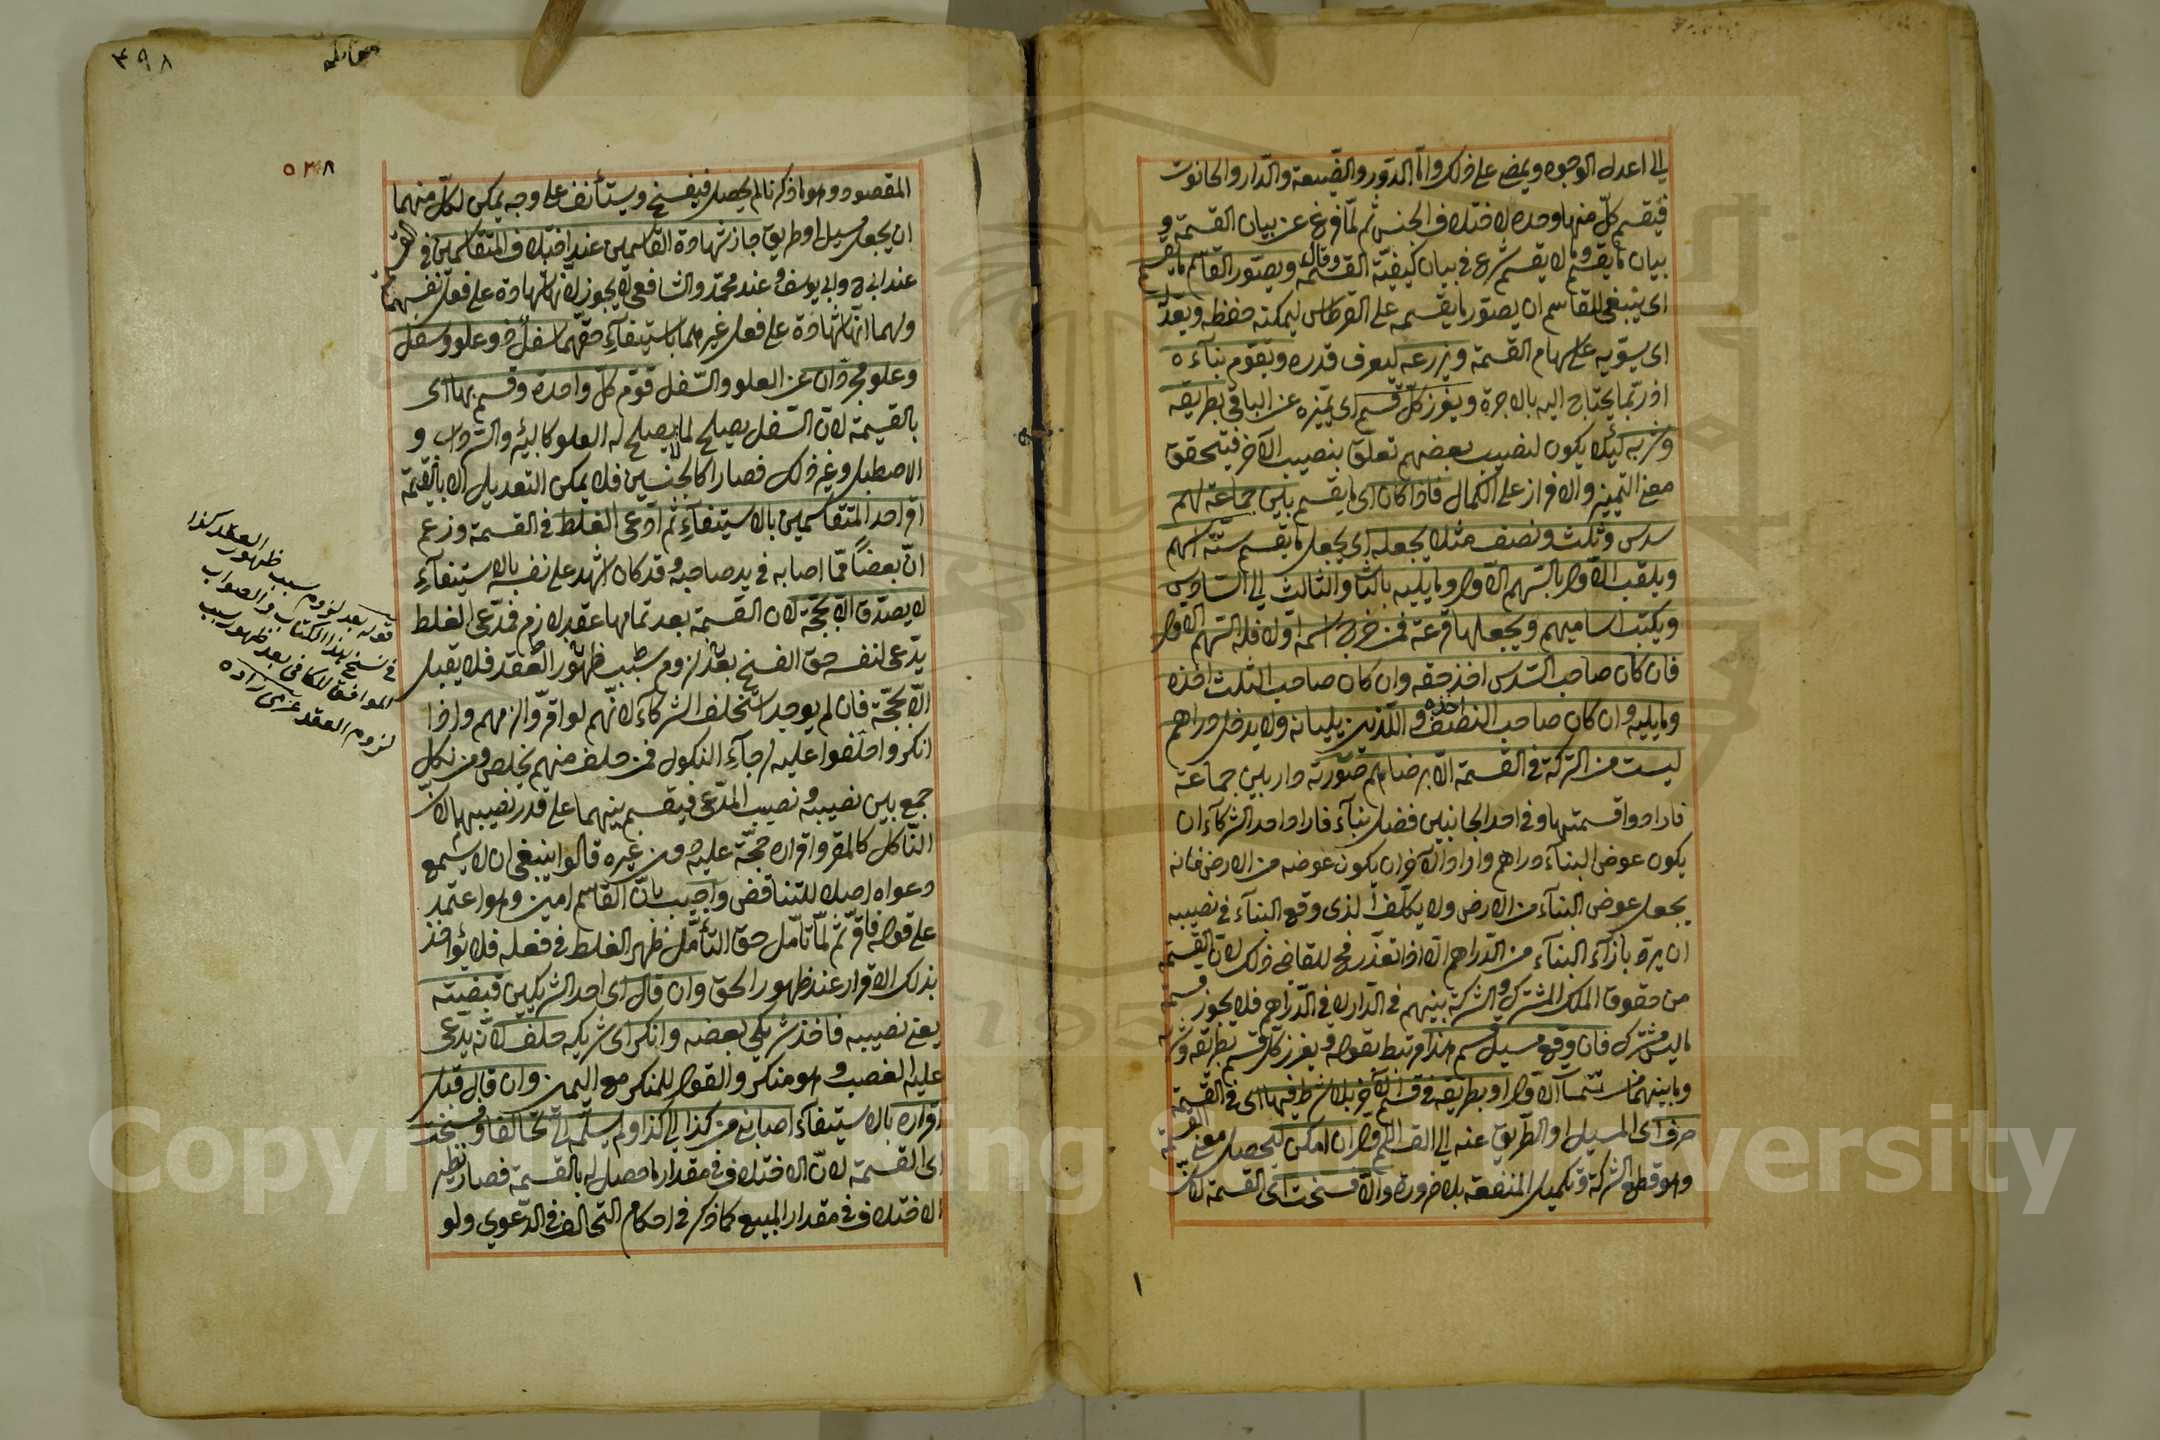 الى اعدل الوجوه ويمضى على ذلك واما الدور والضيعة والدار والحانوت
فيقسم كل منها وحده لاختلاف الجنس ثم لما فرغ عن بيان القسمة و
بيان ما يقسم وما لا يقسم شرع فى بيان كيفية القسمة وقال ويصور القاسم ما يقسم
اى ينبغى للقاسم ان يصور ما يقسمه على القرطاس ليمكنه حفظه ويعدله
اى يسويه على سهام القسمة ويزرعه ليعرف قدره ويقوم بناءه
اذ ربما يحتاج اليه بالاجرة ويفرز كل قسم اى يميزه عن الباقى بطريقه
وشربه لئلا يكون لنصيب بعضهم تعلق بنصيب الآخر فيتحقق
معنى التمييز والافراز على الكمال فاذا كان اى ما يقسم بين جماعة لهم
سدس وثلث ونصف مثلا يجعله اى يجعل ما يقسم ستة اسهم
ويلقب الاول بالسهم الاول وما يليه بالثانى والثالث الى السادس
ويكتب اساميهم ويجعلها قرعة فمن خرج اسمه اولا فله السهم الاول
فان كان صاحب السدس اخذ حقه وان كان صاحب الثلث اخذه
وما يليه وان كان صاحب النصف اخذه واللذين يليانه ولا يدخل دراهم
ليست من التركة فى القسمة الا برضاهم صورته دار بين جماعة
فارادوا قسمتها وفى احد الجانبين فضل بناء فاراد احد الشركاء ان
يكون عوض البناء دراهم واراد الآخر ان يكون عوضه من الارض فانه
يجعل عوض البناء من الارض ولا يكلف الذى وقع البناء فى نصيبه
ان يرد بازاء البناء من الدراهم الا اذا تعذر فح للقاضى ذلك لان القسمة
من حقوق الملك المشترك والشركة بينهم فى الدار لا فى الدراهم فلا يجوز قسمة
ما ليس مشترك فان وقع مسيل قسم هذا مرتبط بقوله ويفرز كل قسم بطريقه وشربه
وما بينهما الاول او طريقه فى قسم آخر بلا شرط فيها اى فى القسمة
صرف اى المسيل او الطريق عنه الى القسم الاول ان امكن ليحصل معنى القسمة
وهو قطع الشركة وتكميل المنفعة بلا ضرورة والا فسخت اى القسمة لان
٣٩٨
٥٣٨
المقصود وهو ما ذكرنا لم يحصل فيفسخ ويستأنف على وجه يمكن لكل منهما
ان يجعل مسيلا وطريق جاز شهادة القاسمين عند اختلاف المتقاسمين فى القسمة
عند ابى ح وابى يوسف وعند محمد والشافعى لا يجوز لانها شهادة على فعل نفسهما
ولهما انها شهادة على فعل غيرهما باستيفاء حقهما سفل ذو علو وسفل
وعلو مجردان عن العلو والسفل قوم كل واحدة وقسم بها اى
بالقيمة لان السفل يصلح لما لا يصلح له العلو كالبئر والسرداب و
الاصطبل وغير ذلك فصارا كالجنسين فلا يمكن التعديل الا بالقيمة
اقر احد المتقاسمين بالاستيفاء ثم ادعى الغلط فى القسمة وزعم
ان بعضا مما اصابه فى يد صاحبه وقد كان اشهد على نفسه بالاستيفاء
لا يصدق الا بحجة لان القسمة بعد تمامها عقد لازم فمدعى الغلط
يدعى لنفسه حق الفسخ بعد لزوم سبب ظهور العقد فلا يقبل
الا بحجة فان لم يوجد استحلف الشركاء لانهم لو اقروا لزمهم واذا
انكروا حلفوا عليه رجاء النكول فمن حلف منهم تخلص ومن نكل
جمع بين نصيبه ونصيب المدعى فيقسم بينهما على قدر نصيبهما لان
الناكل كالمقر واقراره حجة عليه دون غيره قالوا ينبغى ان لا يسمع
دعواه اصلا للتناقض واجيب بان القاسم امين وهو اعتمد
على قوله فاقر ثم لما تأمل حق التأمل ظهر الغلط فى فعله فلا يؤاخذ
بذلك الاقرار عند ظهور الحق وان قال اى احد الشريكين قبضته
يعنى نصيبه فاخذ شريكى بعضه وانكر اى شريكه حلف لانه يدعى
عليه الغصب وهو منكر والقول للمنكر مع اليمين وان قال قبل
اقراره بالاستيفاء اصابنى من كذا الى كذا ولم يسلمه الى تحالفا وفسخت
اى القسمة لان الاختلاف فى مقدار ما حصل له بالقسمة فصار نظير
الاختلاف فى مقدار المبيع كما ذكر فى احكام التحالف فى الدعوى ولو
قوله بعد لزوم سبب ظهور العقد كذا
فى نسخ هذا الكتاب والصواب
الموافق للكافى بعد ظهور سبب
لزوم العقد عزمى زاده
Copyright King Saud University